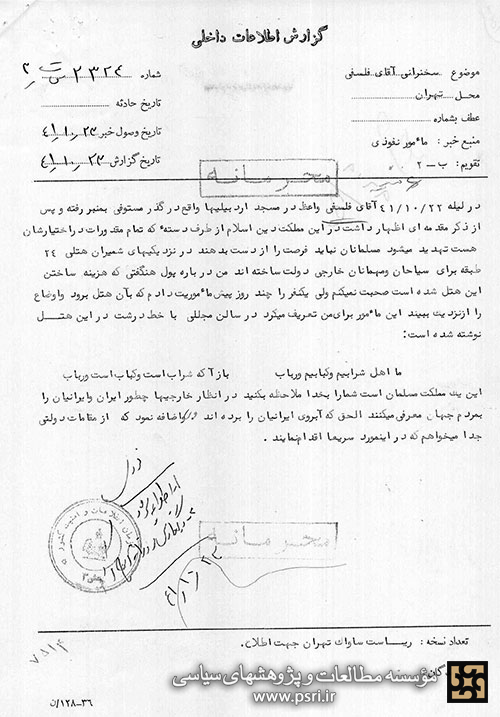 گزارش اطلاعات داخلی
موضوع سخنرانی آقای فلسفی
شماره ۲۳۲۴
محل تهران
تاریخ حادثه
عطف بشماره
تاریخ وصول خبر ۴۱،۱۰،۲۳
منبع خبر: مأمور نفوذی
تاریخ گزارش ۴۱،۱۰،۲۳
تقویم: ب - ۲
محرمانه
در لیله ۴۱/۱۰/۲۲ آقای فلسفی واعظ در مسجد اردبیلیها واقع در گذر مستوفی بمنبر رفته و پس
از ذکر مقدمه ای اظهار داشت در این مملکت دین اسلام از طرف دسته که تمام مقدورات در اختیارشان
هست تهدید میشود مسلمانان نباید فرصت را از دست بدهند در نزدیکیهای شمیران هتلی ۲۴
طبقه برای سیاحان ومهمانان خارجی دولت ساخته اند من در باره پول هنگفتی که هزینه ساختن
این هتل شده است صحبت نمیکنم ولی یکنفر را چند روز پیش مأموریت دادم که بآن هتل برود واوضاع
را از نزدیک ببیند این مأمور برای من تعریف میکرد در سالن مجللی با خط درشت در این هتل
نوشته شده است:
ما اهل شرابیم وکبابیم ورباب باز آ که شراب است وکباب است ورباب
این یک مملکت مسلمان است شما را بخدا ملاحظه بکنید در انظار خارجیها چطور ایران وایرانیان را
بمردم جهان معرفی میکنند الحق که آبروی ایرانیان را برده اند و اضافه نمود که از مقامات دولتی
جدا میخواهم که در اینمورد سریعا اقدام نمایند .
محرمانه
تعداد نسخه : ریاست ساواک تهران جهت اطلاع.
۷۵۱۴
مؤسسه مطالعات و پژوهشهای سیاسی
www.psri.ir
۱۲۸-۳۶/ن